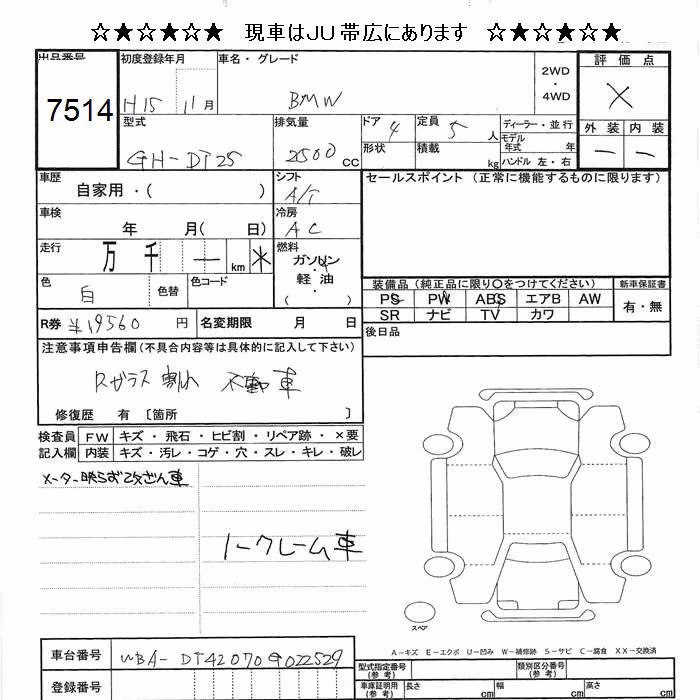 ☆★☆★☆★ 現車はJU帯広にあります ☆★☆★☆★
出品番号 初度登録年月 車名・グレード 2WD・4WD 評価点
7514 H15 11月 BMW X
型式 排気量 ドア 4 定員 5人 ディーラー・並行 外装 内装
GH-DT25 2500cc 形状 積載 kg モデル年式 年 ハンドル 左・右 — —
車歴 自家用・( ) シフト A/T セールスポイント (正常に機能するものに限ります)
車検 年 月( 日) 冷房 AC
走行 万 千 — km * 燃料 ガソリン・軽油・( )
色 白 色替 色コード
装備品 (純正品に限り〇をつけてください) 新車保証書
PS PW ABS エアB AW 有・無
SR ナビ TV カワ
R券 ¥19560 円 名変期限 月 日 後日品
注意事項申告欄(不具合内容等は具体的に記入して下さい)
Rガラス割れ 不動車
修復歴 有 〔箇所 〕
検査員 FW キズ・飛石・ヒビ割・リペア跡・×要
記入欄 内装 キズ・汚レ・コゲ・穴・スレ・キレ・破レ
メーター映らず改ざん車
ノークレーム車
スペア
A-キズ E-エクボ U-凹み W-補修跡 S-サビ C-腐食 XX-交換済
車台番号 WBA-DT42070G022529
登録番号
型式指定番号(参考) 類別区分番号(参考)
車庫証明用(参考) 長さ cm 幅 cm 高さ cm